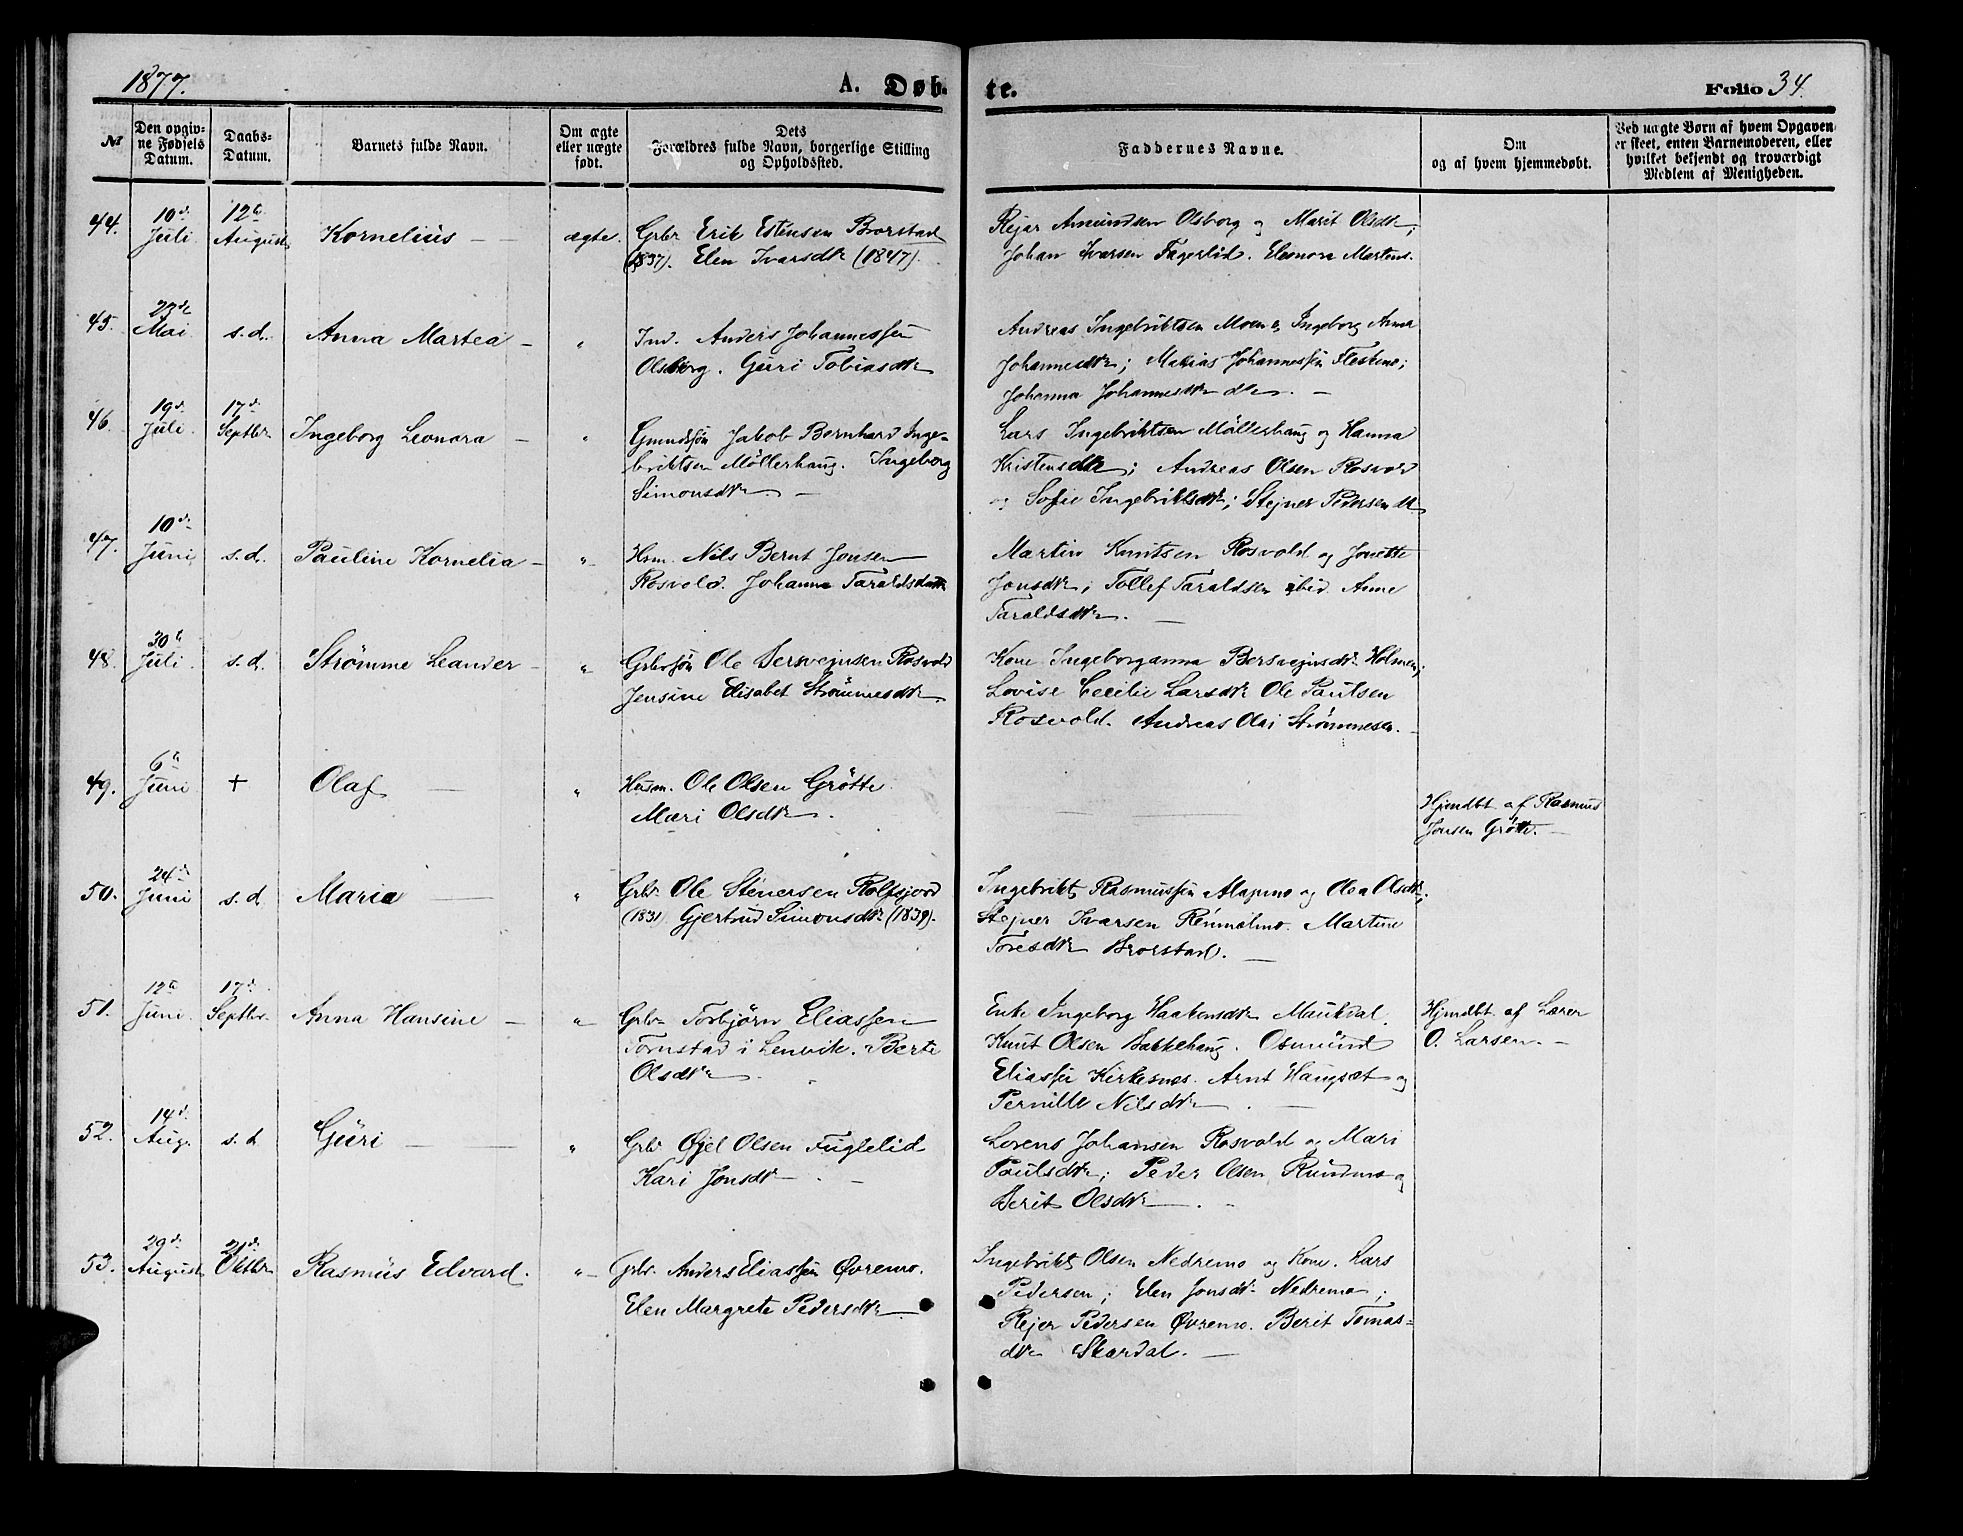 1877.
A. Døb-
te.
Folio 34.
№
Den opgiv-
ne Fødsels
Datum.
Daabs-
Datum.
Barnets fulde Navn.
Om ægte
eller uægte
født.
Dets
Forældres fulde Navn, borgerlige Stilling
og Opholdssted.
Faddernes Navne.
Om
og af hvem hjemmedøbt.
Ved uægte Børn af hvem Opgaven
er skeet, enten Barnemoderen, eller
hvilket bekjendt og troværdigt
Medlem af Menigheden.
44. 10de Juli 12te August Kornelius — ægte. Grbr Erik Estensen Brorstad
(1837). Elen Ivarsdtr (1847).
Rejar Amundsen Olsborg og Marit Olsdtr;
Johan Ivarsen Fagerlid. Elenora Martens.
45. 23de Mai s. d. Anna Martea — " Ind. Anders Johannessen
Olsborg. Guri Tobiasdtr
Andreas Ingebriktsen Moen & Ingeborg Anna
Johannesdtr; Johannessen
Johanna Johannesdtr —
46. 19de Juli 17de Septbr. Ingeborg Leonora — " Gmndsøn Jakob Bernhard Inge-
briktsen Möllerhaug. Ingeborg
Simonsdtr. —
Lars Ingebriktsen Möllerhaug og Hanna
Kristensdtr; Andreas Olsen Rosvold
og Sofie Ingebriktsdtr; Stejner Pedersen
47. 10de Juni s. d. Pauline Kornelia — " Hsm. Nils Bernt Jonsen
Rosvold. Johanna Taraldsdatter
Martin Knutsen Rosvold og Jonette
Jonsdtr; Tollef Taraldsen ibid. Anne
Taraldsdtr. —
48. 30te Juli s. d. Strömme Leander — " Grbrsøn Ole Bersvejnsen Rosvold
Jensine Elisabet Strömmesdtr
Kone Ingeborganna Bersvejnsdtr Holmen;
Lovise Cecilie Larsdtr Ole Paulsen
Rosvold. Andreas Olai Strömmesen.
49. 6te Juni + Olaf — " Husm. Ole Olsen Grötte
Mari Olsdtr.
Hjmdbt af Rasmus
Jonsen Grötte. —
50. 24de Juni s. d. Maria — " Grbr Ole Stenersen Rolfsjord
(1831) Gjertrud Simonsdtr (1839).
Ingebrikt Rasmussen Alapmo og Olea Olsdtr;
Stejner Ivarsen Römmelmo. Martine
Toresdtr Brorstad. —
51. 12te Juni 17de Septbr. Anna Hansine — " Grbr Torbjörn Eliassen
Tornstad i Lenvik. Berte
Olsdtr.
Enke Ingeborg Haakensdtr Maukdal.
Knut Olsen Bakkehaug. Osmund
Eliassen Kirkesnes. Arnt Haugsæt og
Pernille Nilsdtr. —
Hjmdbt af Lærer
O. Larsen. —
52. 14de Aug. s. d. Guri — " Grbr Øjel Olsen Fuglelid
Kari Jonsdtr. —
Lorens Johansen Rosvold og Mari
Paulsdtr; Peder Olsen Rundmo og
Berit Olsdtr.
53. 29de August 21de Oktbr Rasmus Edvard. " Grbr. Anders Eliassen Øvremo.
Elen Margrete Pedersdtr.
Ingebrikt Olsen Nedremo og Kone. Lars
Pedersen; Elen Jonsdtr Nedremo;
Rejer Pedersen Øvremo. Berit Tomas-
dtr Skardal. —